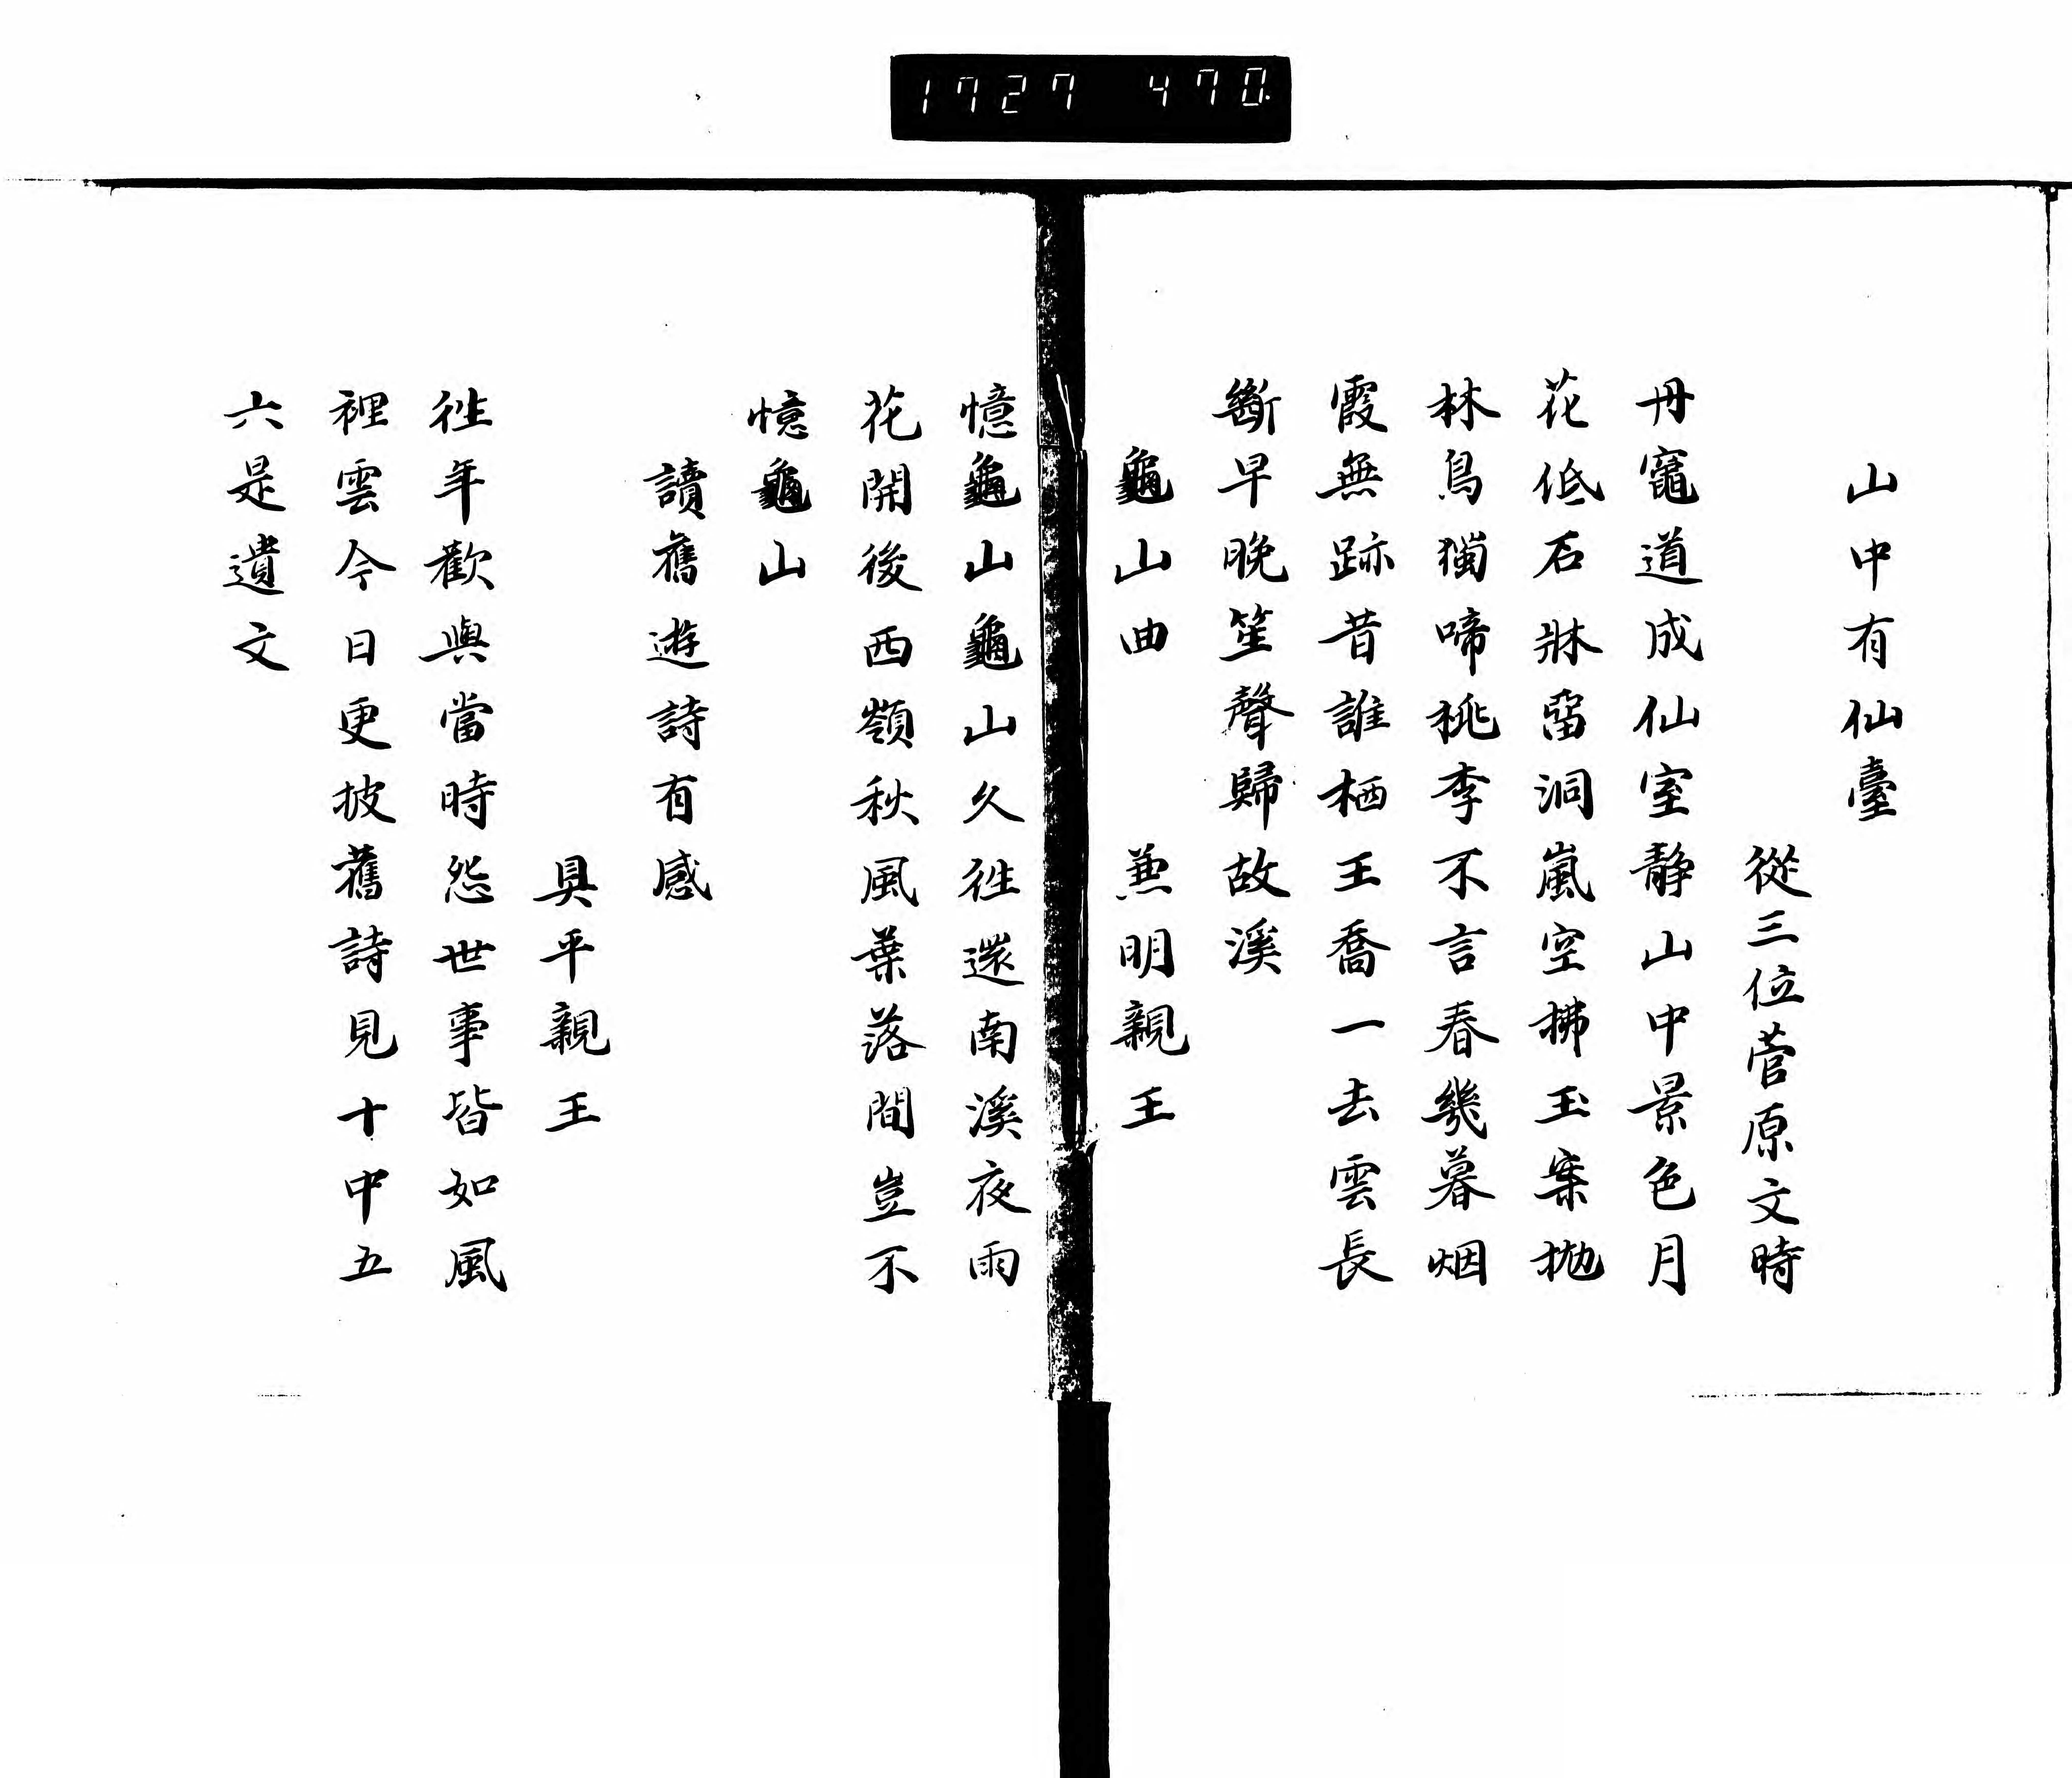 1727 470
山中有仙臺
從三位菅原文時
丹竈道成仙室静山中景色月
花低石牀留洞嵐空拂玉案抛
林鳥獨啼桃李不言春幾暮烟
霞無跡昔誰栖王喬一去雲長
斷早晚笙聲歸故溪
龜山曲 兼明親王
憶龜山龜山久往還南溪夜雨
花開後西嶺秋風葉落間豈不
憶龜山
讀舊遊詩有感
具平親王
往年歡與當時怨世事皆如風
裡雲今日更披舊詩見十中五
六是遺文